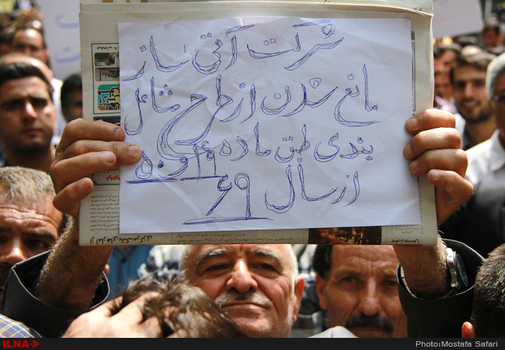 شرکت آتی ساز
مانع شدن از طرح مشاغل
بندی طبق ماده ۴۹ و ۵۰
از سال ۶۹
ILNA
Photo:Mostafa Safari